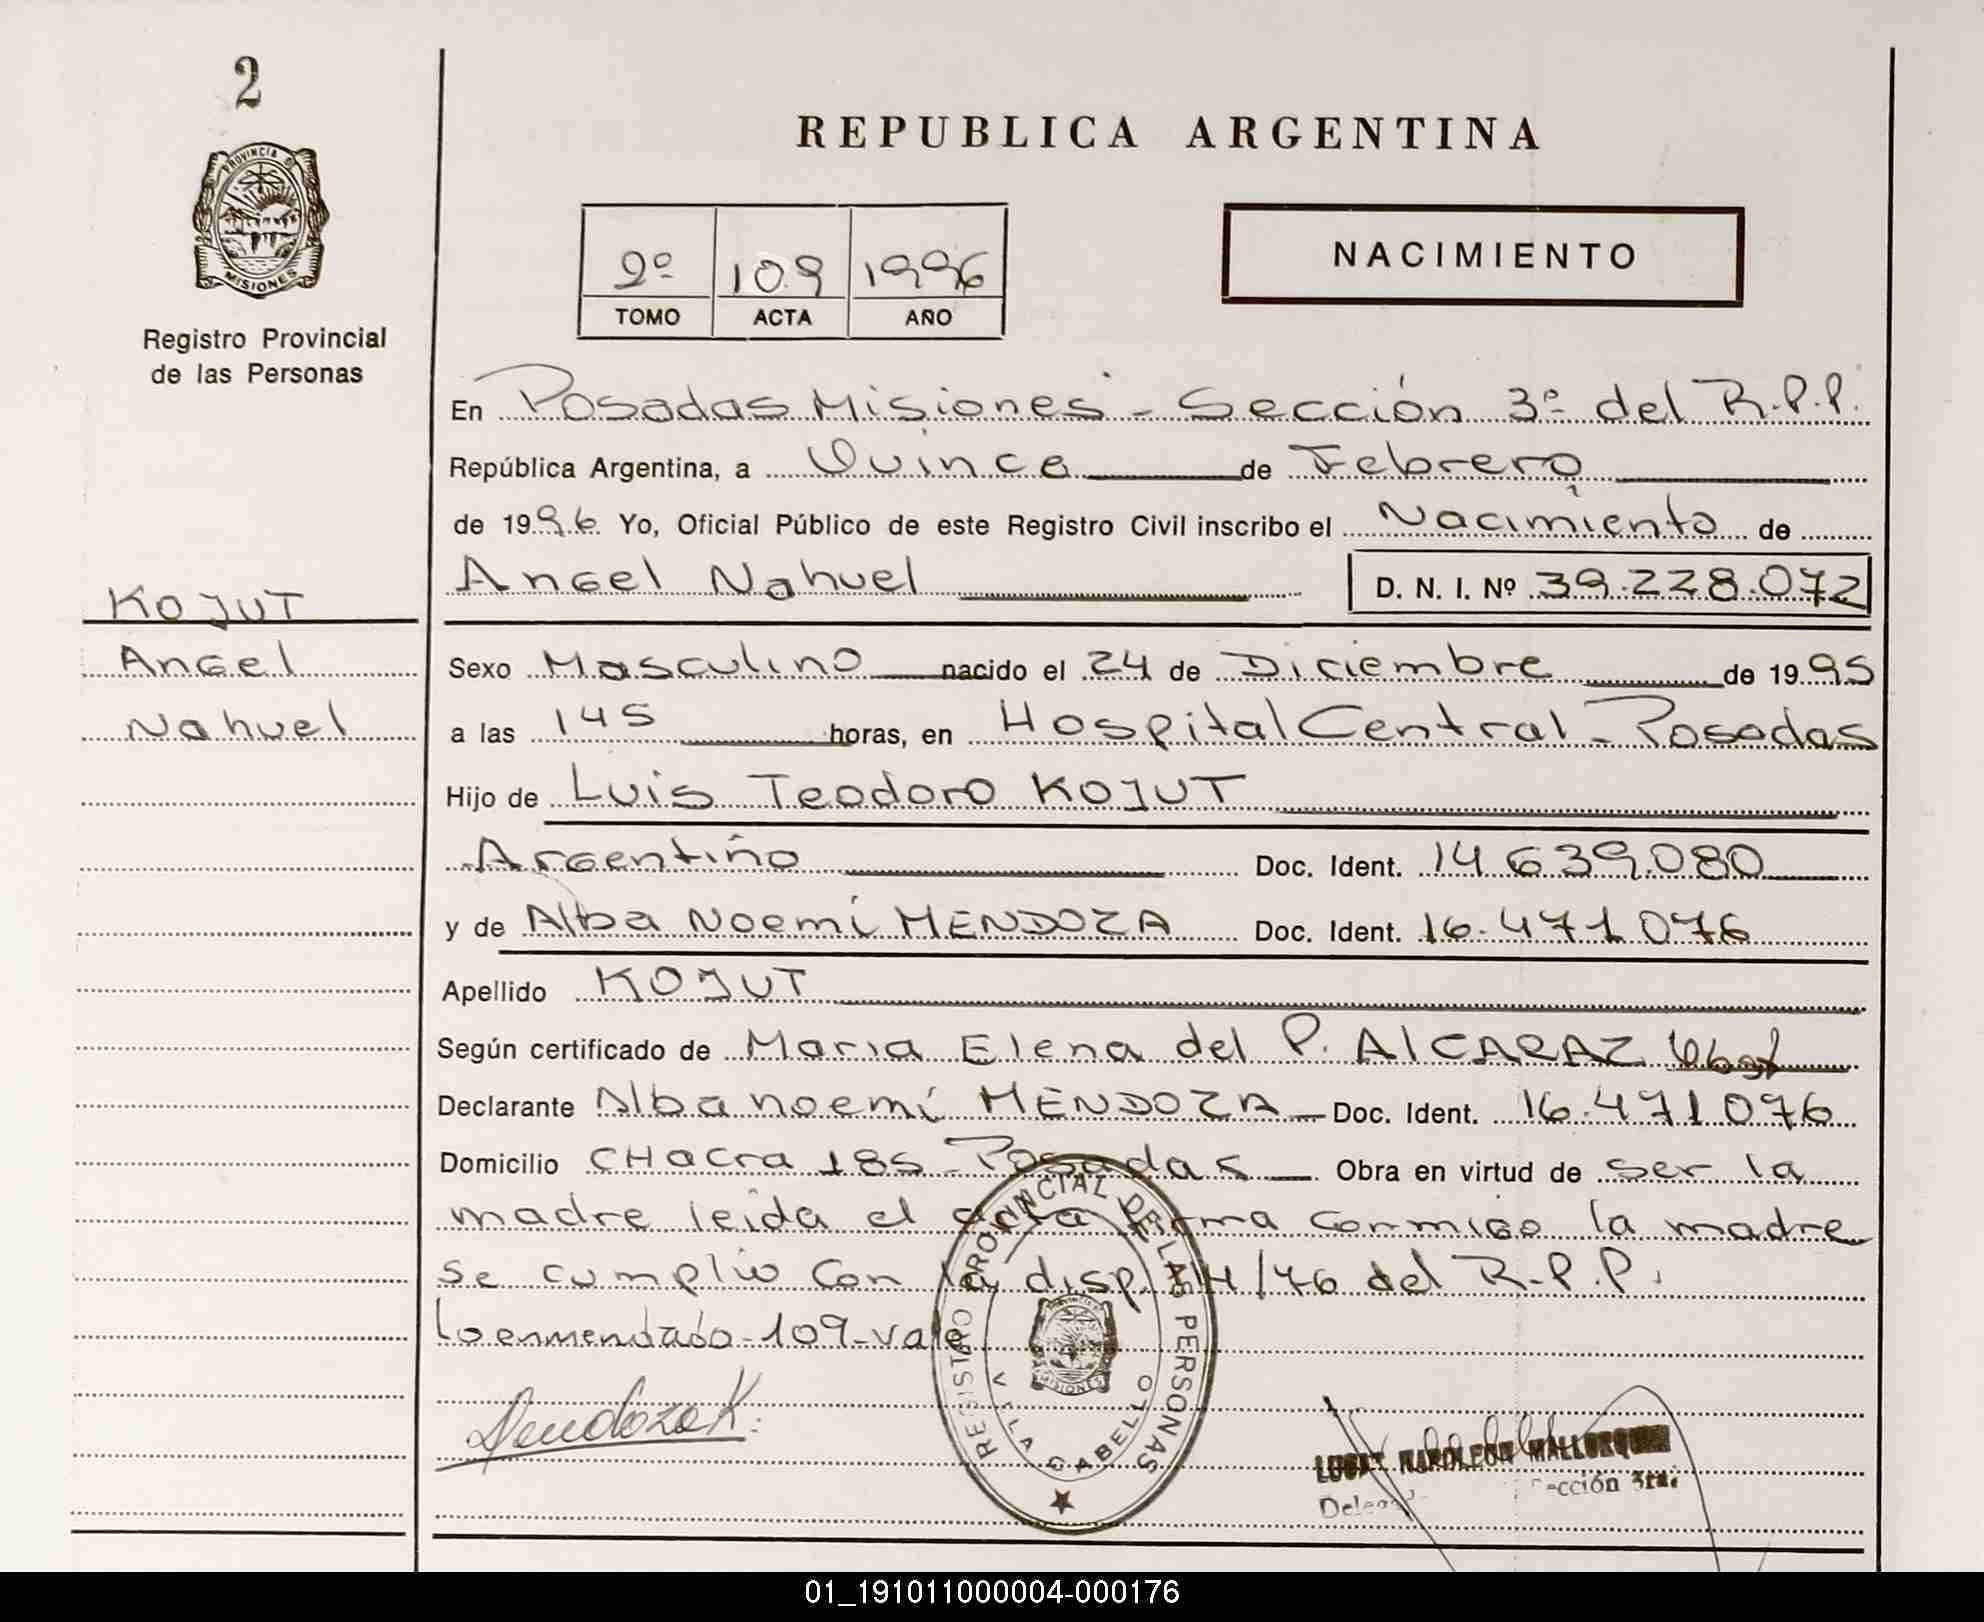 2
PROVINCIA DE
MISIONES
Registro Provincial
de las Personas
KOJUT
Angel
Nahuel
REPUBLICA ARGENTINA
2º 109 1996
TOMO ACTA AÑO
NACIMIENTO
En Posadas Misiones - Sección 3º del R.P.P.
República Argentina, a Quince de Febrero
de 1996 Yo, Oficial Público de este Registro Civil inscribo el Nacimiento de
Angel Nahuel D. N. I. Nº 39.228.072
Sexo Masculino nacido el 24 de Diciembre de 1995
a las 145 horas, en Hospital Central - Posadas
Hijo de Luis Teodoro KOJUT
Argentino Doc. Ident. 14.639.080
y de Alba Noemí MENDOZA Doc. Ident. 16.471.076
Apellido KOJUT
Según certificado de Maria Elena del P. AlCARAZ Obst
Declarante Alba noemí MENDOZA - Doc. Ident. 16.471.076
Domicilio CHacra 185 - Posadas - Obra en virtud de ser la
madre leida el acta firma conmigo la madre
se cumplio con la disp. 14/76 del R.P.P.
Lo enmendado - 109 - vale
Mendoza K.
REGISTRO PROVINCIAL DE LAS PERSONAS
VILLA CABELLO
MISIONES
NAPOLEON
Sección 3ra.
01_191011000004-000176